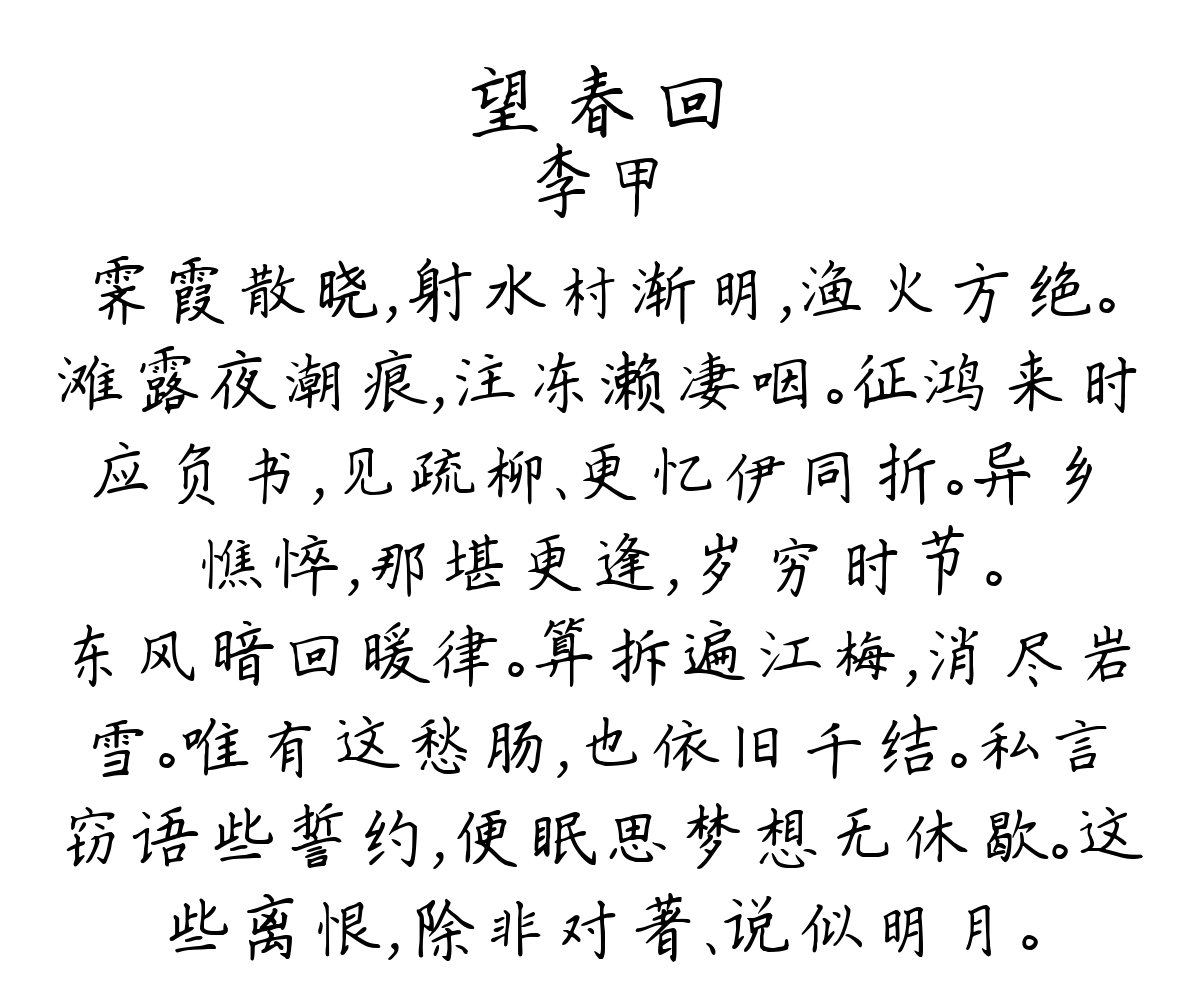 望春回
李甲
霁霞散晓,射水村渐明,渔火方绝。
滩露夜潮痕,注冻濑凄咽。征鸿来时
应负书,见疏柳、更忆伊同折。异乡
憔悴,那堪更逢,岁穷时节。
东风暗回暖律。算拆遍江梅,消尽岩
雪。唯有这愁肠,也依旧千结。私言
窃语些誓约,便眠思梦想无休歇。这
些离恨,除非对著、说似明月。